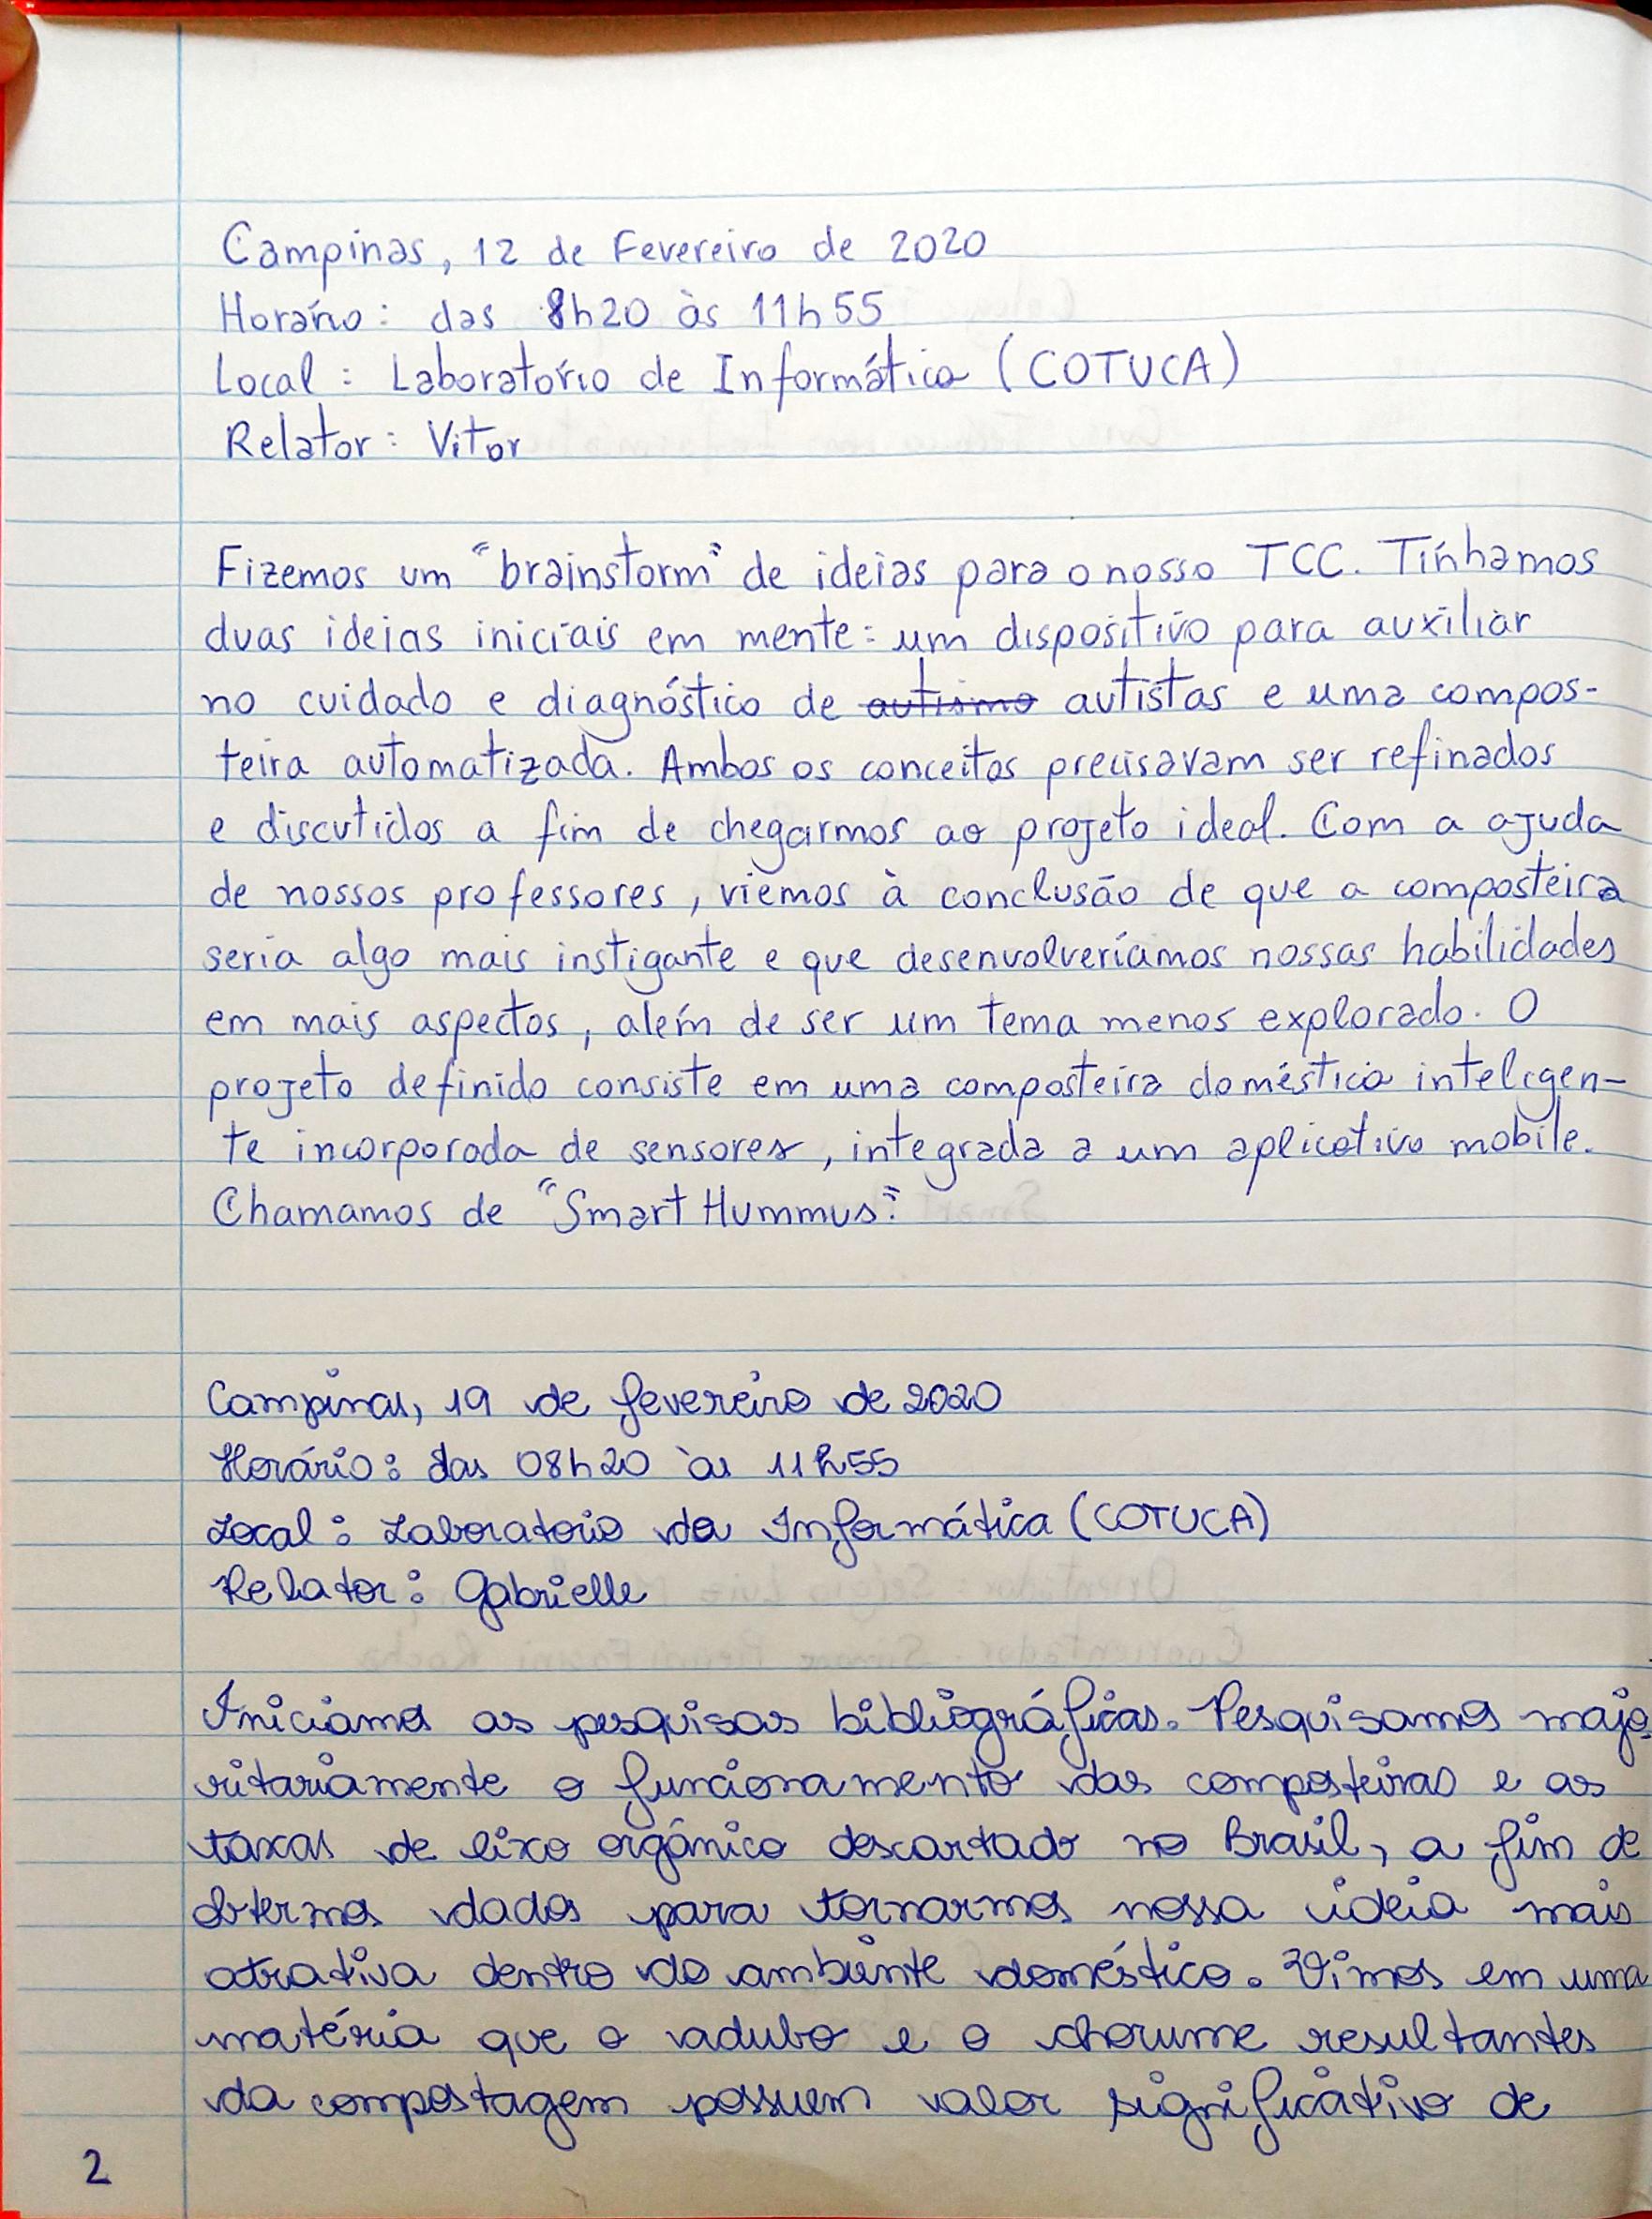 Campinas, 12 de Fevereiro de 2020
Horário: das 8h20 às 11h55
Local: Laboratório de Informática (COTUCA)
Relator: Vitor
Fizemos um "brainstorm" de ideias para o nosso TCC. Tínhamos
duas ideias iniciais em mente: um dispositivo para auxiliar
no cuidado e diagnóstico de autismo autistas e uma compos-
teira automatizada. Ambos os conceitos precisavam ser refinados
e discutidos a fim de chegarmos ao projeto ideal. Com a ajuda
de nossos professores, viemos à conclusão de que a composteira
seria algo mais instigante e que desenvolveríamos nossas habilidades
em mais aspectos, além de ser um tema menos explorado. O
projeto definido consiste em uma composteira doméstica inteligen-
te incorporada de sensores, integrada a um aplicativo mobile.
Chamamos de "Smart Hummus".
Campinas, 19 de fevereiro de 2020
Horário: das 08h20 às 11h55
Local: Laboratório da Informática (COTUCA)
Relator: Gabrielle
Iniciamos as pesquisas bibliográficas. Pesquisamos majo-
ritariamente o funcionamento das composteiras e as
taxas de lixo orgânico descartado no Brasil, a fim de
obtermos dados para tornarmos nossa ideia mais
atrativa dentro do ambiente doméstico. Vimos em uma
matéria que o adubo e o chorume resultantes
da compostagem possuem valor significativo de
2